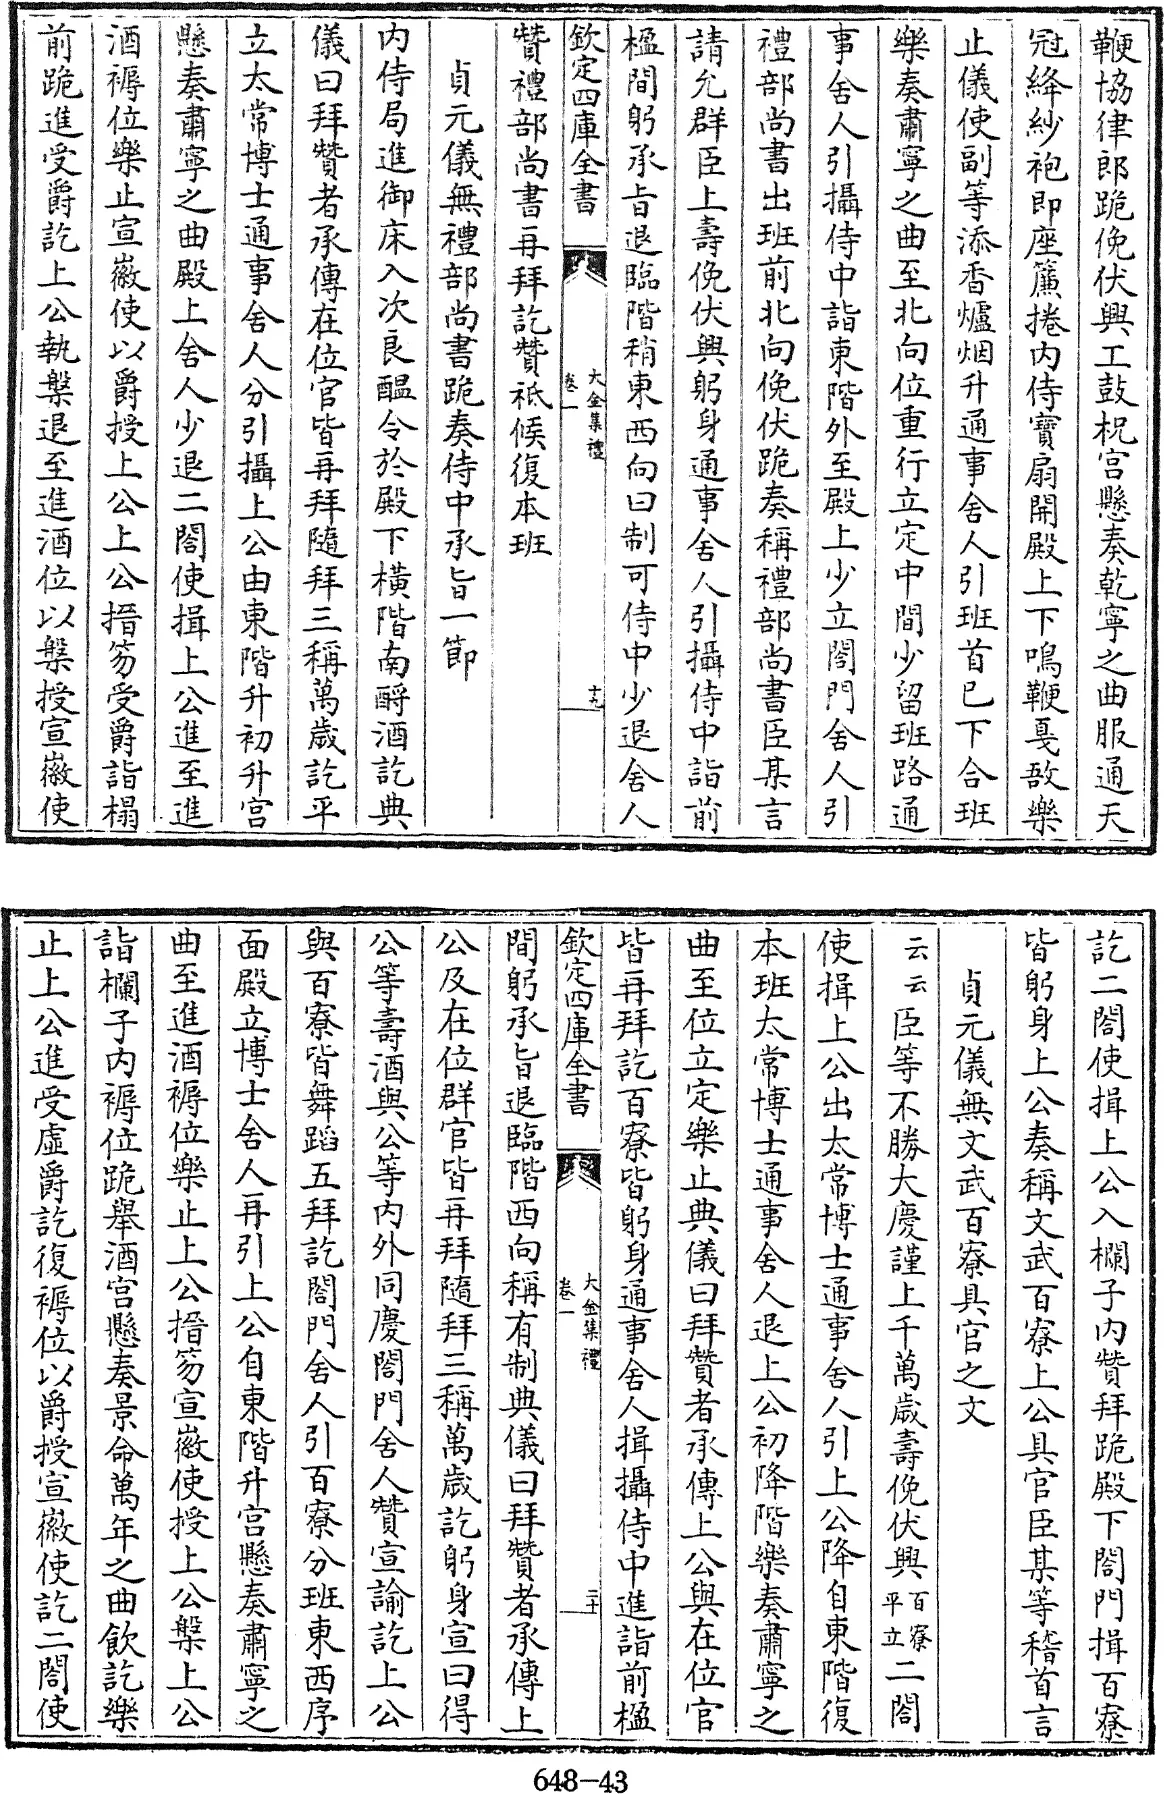 鞭協律郎跪俛伏興工鼓柷宫懸奏乾寧之曲服通天
冠絳紗袍即座簾捲内侍寶扇開殿上下鳴鞭戞敔樂
止儀使副等添香爐烟升通事舍人引班首已下合班
樂奏肅寧之曲至北向位重行立定中間少留班路通
事舍人引攝侍中詣東階外至殿上少立閤門舍人引
禮部尚書出班前北向俛伏跪奏稱禮部尚書臣某言
請允群臣上壽俛伏興躬身通事舍人引攝侍中詣前
楹間躬承旨退臨階稍東西向曰制可侍中少退舍人
欽定四庫全書
大金集禮
卷一
十九
贊禮部尚書再拜訖贊祗候復本班
貞元儀無禮部尚書跪奏侍中承旨一節
内侍局進御床入次良醖令於殿下横階南酹酒訖典
儀曰拜贊者承傳在位官皆再拜隨拜三稱萬歳訖平
立太常博士通事舍人分引攝上公由東階升初升宫
懸奏肅寧之曲殿上舍人少退二閤使揖上公進至進
酒褥位樂止宣徽使以爵授上公上公搢笏受爵詣榻
前跪進受爵訖上公執槃退至進酒位以槃授宣徽使
訖二閤使揖上公入欄子内贊拜跪殿下閤門揖百寮
皆躬身上公奏稱文武百寮上公具官臣某等稽首言
貞元儀無文武百寮具官之文
云云臣等不勝大慶謹上千萬歳壽俛伏興百寮平立二閤
使揖上公出太常博士通事舍人引上公降自東階復
本班太常博士通事舍人退上公初降階樂奏肅寧之
曲至位立定樂止典儀曰拜贊者承傳上公與在位官
皆再拜訖百寮皆躬身通事舍人揖攝侍中進詣前楹
欽定四庫全書
大金集禮
卷一
二十
間躬承旨退臨階西向稱有制典儀曰拜贊者承傳上
公及在位群官皆再拜隨拜三稱萬歳訖躬身宣曰得
公等壽酒與公等内外同慶閤門舍人贊宣諭訖上公
與百寮皆舞蹈五拜訖閤門舍人引百寮分班東西序
面殿立博士舍人再引上公自東階升宫懸奏肅寧之
曲至進酒褥位樂止上公搢笏宣徽使授上公槃上公
詣欄子内褥位跪舉酒宫懸奏景命萬年之曲飲訖樂
止上公進受虚爵訖復褥位以爵授宣徽使訖二閤使
648-43